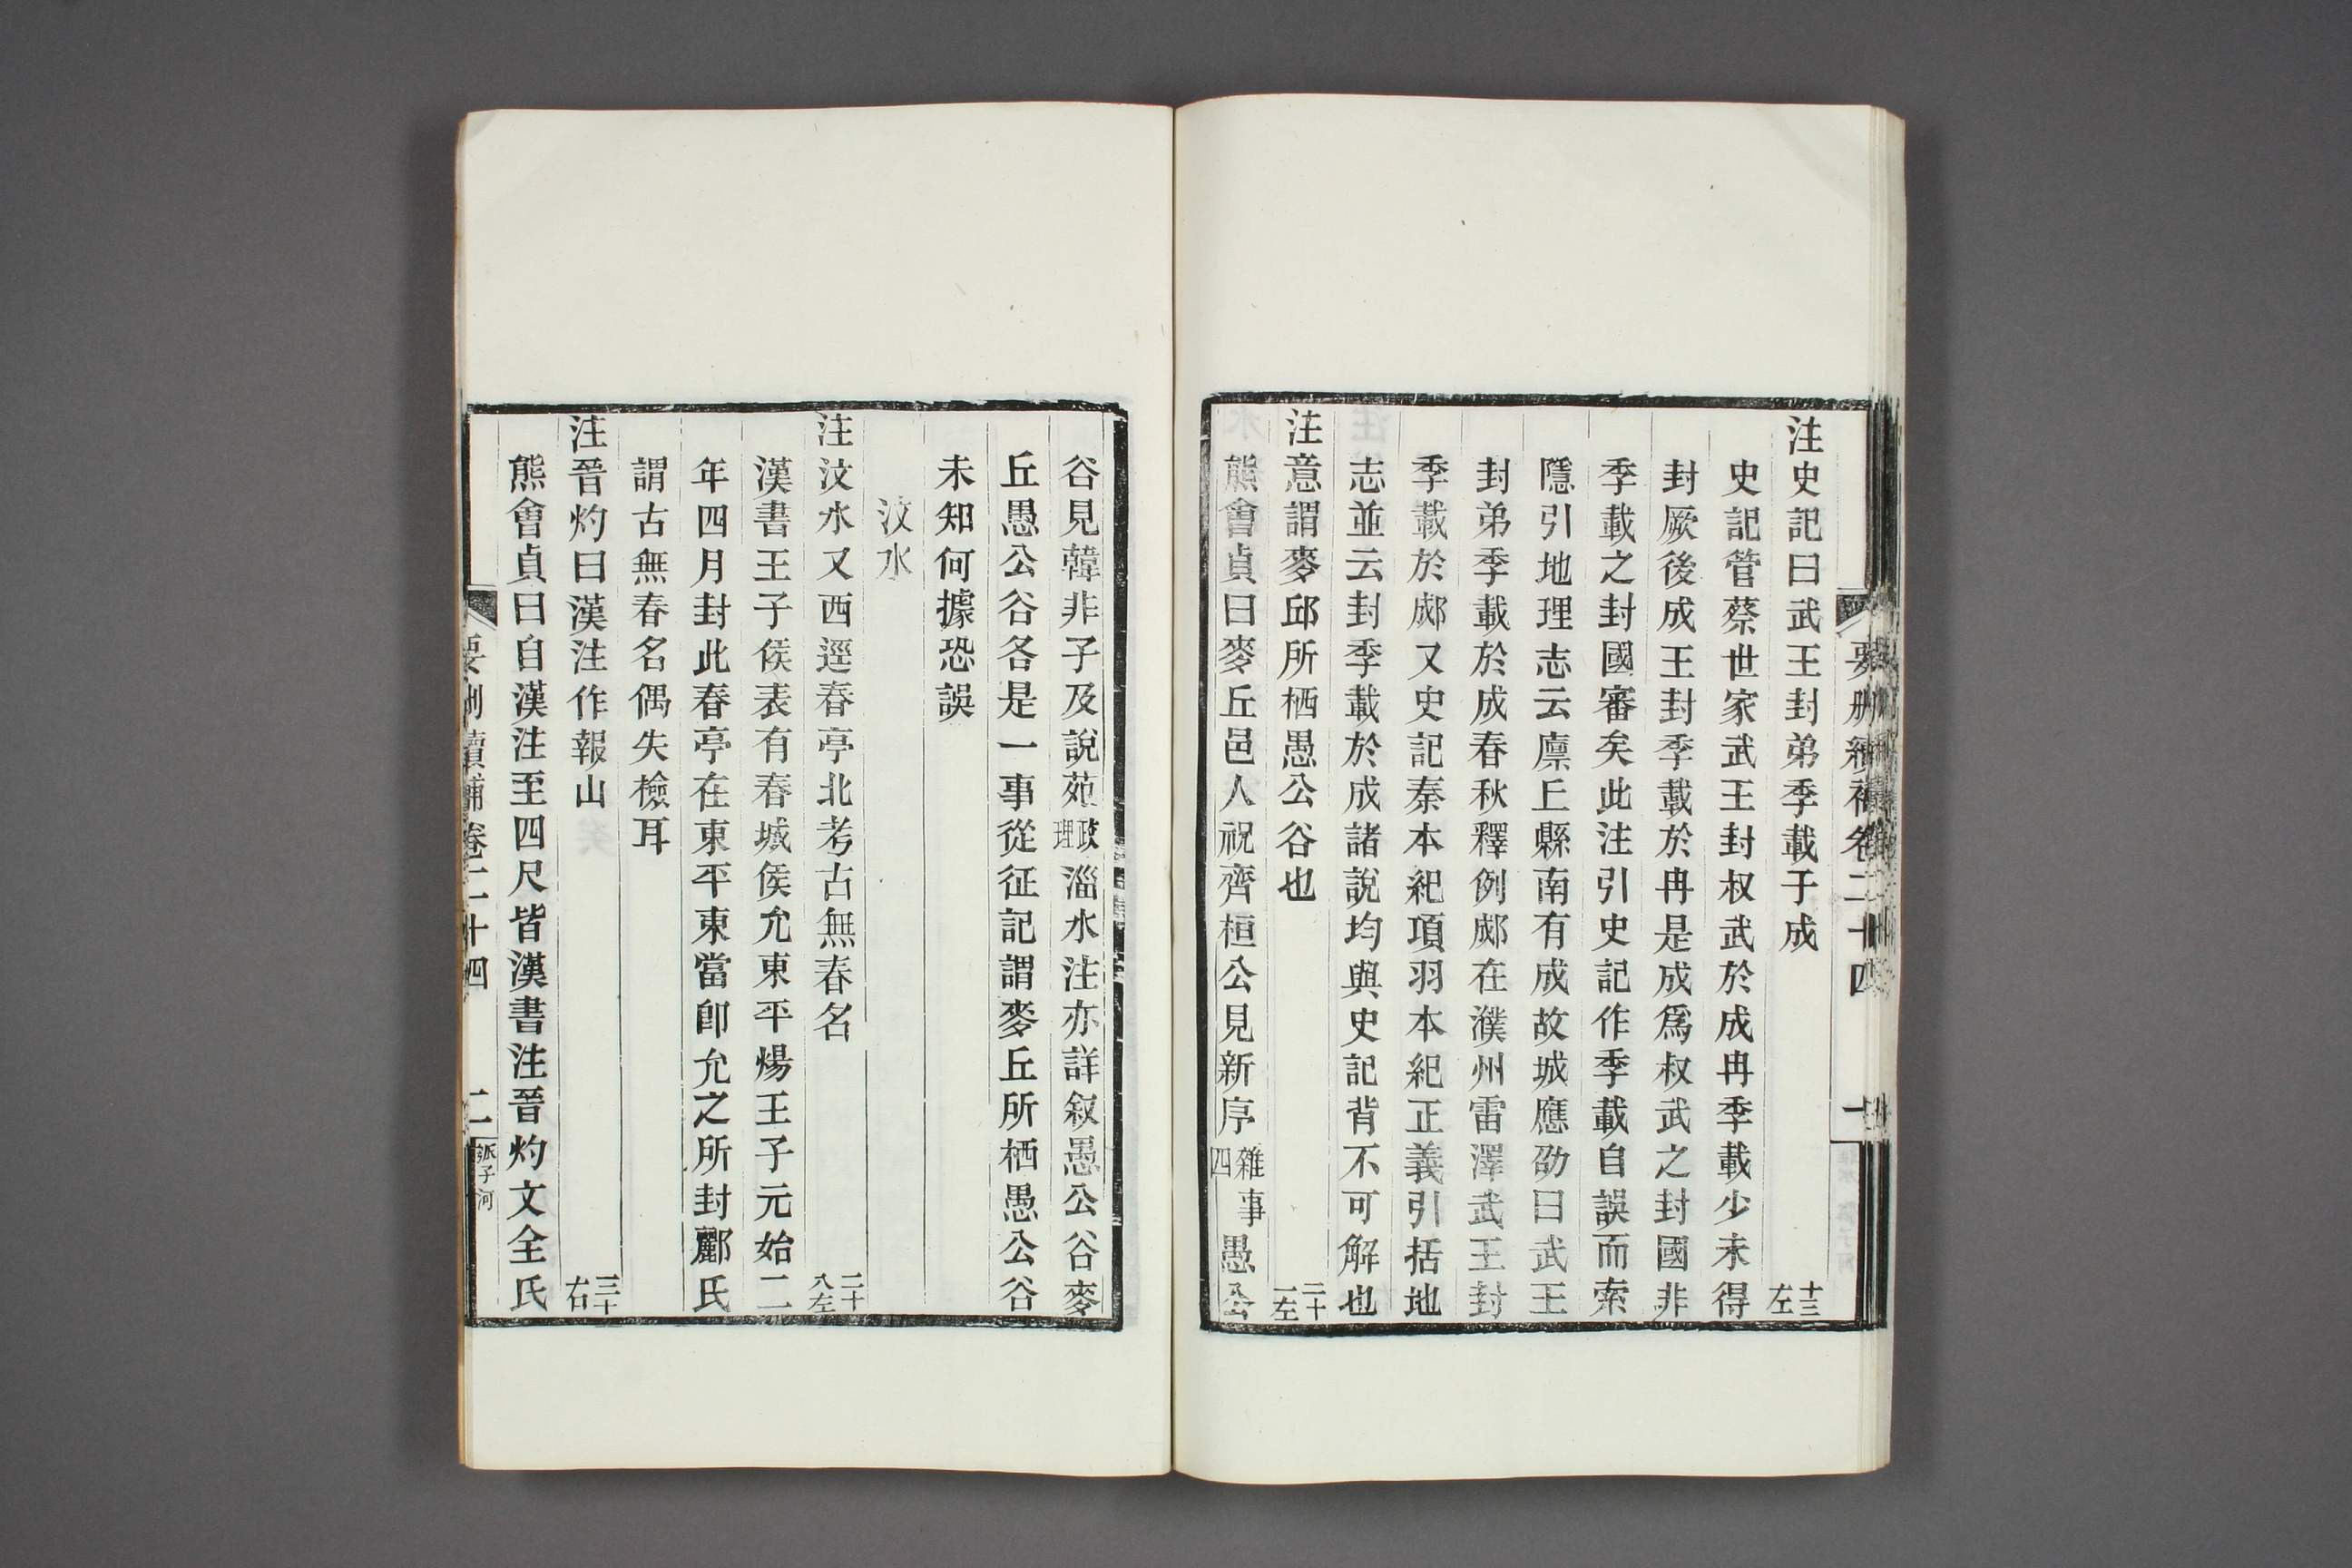 注史記曰武王封弟季載于成 十三左
史記管蔡世家武王封叔武於成冉季載少未得
封厥後成王封季載於冉是成爲叔武之封國非
季載之封國審矣此注引史記作季載自誤而索
隱引地理志云廩丘縣南有成故城應劭曰武王
封弟季載於成春秋釋例郕在濮州雷澤武王封
季載於郕又史記秦本紀項羽本紀正義引括地
志並云封季載於成諸說均與史記背不可解也
注意謂麥邱所栖愚公谷也 二十一左
熊會貞曰麥丘邑人祝齊桓公見新序雜事四愚公
要刪續補卷二十四 一
谷見韓非子及說苑政理淄水注亦詳叙愚公谷麥
丘愚公谷各是一事從征記謂麥丘所栖愚公谷
未知何據恐誤
汶水
注汶水又西逕春亭北考古無春名 二十八左
漢書王子侯表有春城侯允東平煬王子元始二
年四月封此春亭在東平東當卽允之所封酈氏
謂古無春名偶失檢耳
注晉灼曰漢注作報山 三十右
熊會貞曰自漢注至四尺皆漢書注晉灼文全氏
要刪續補卷二十四 二 瓠子河